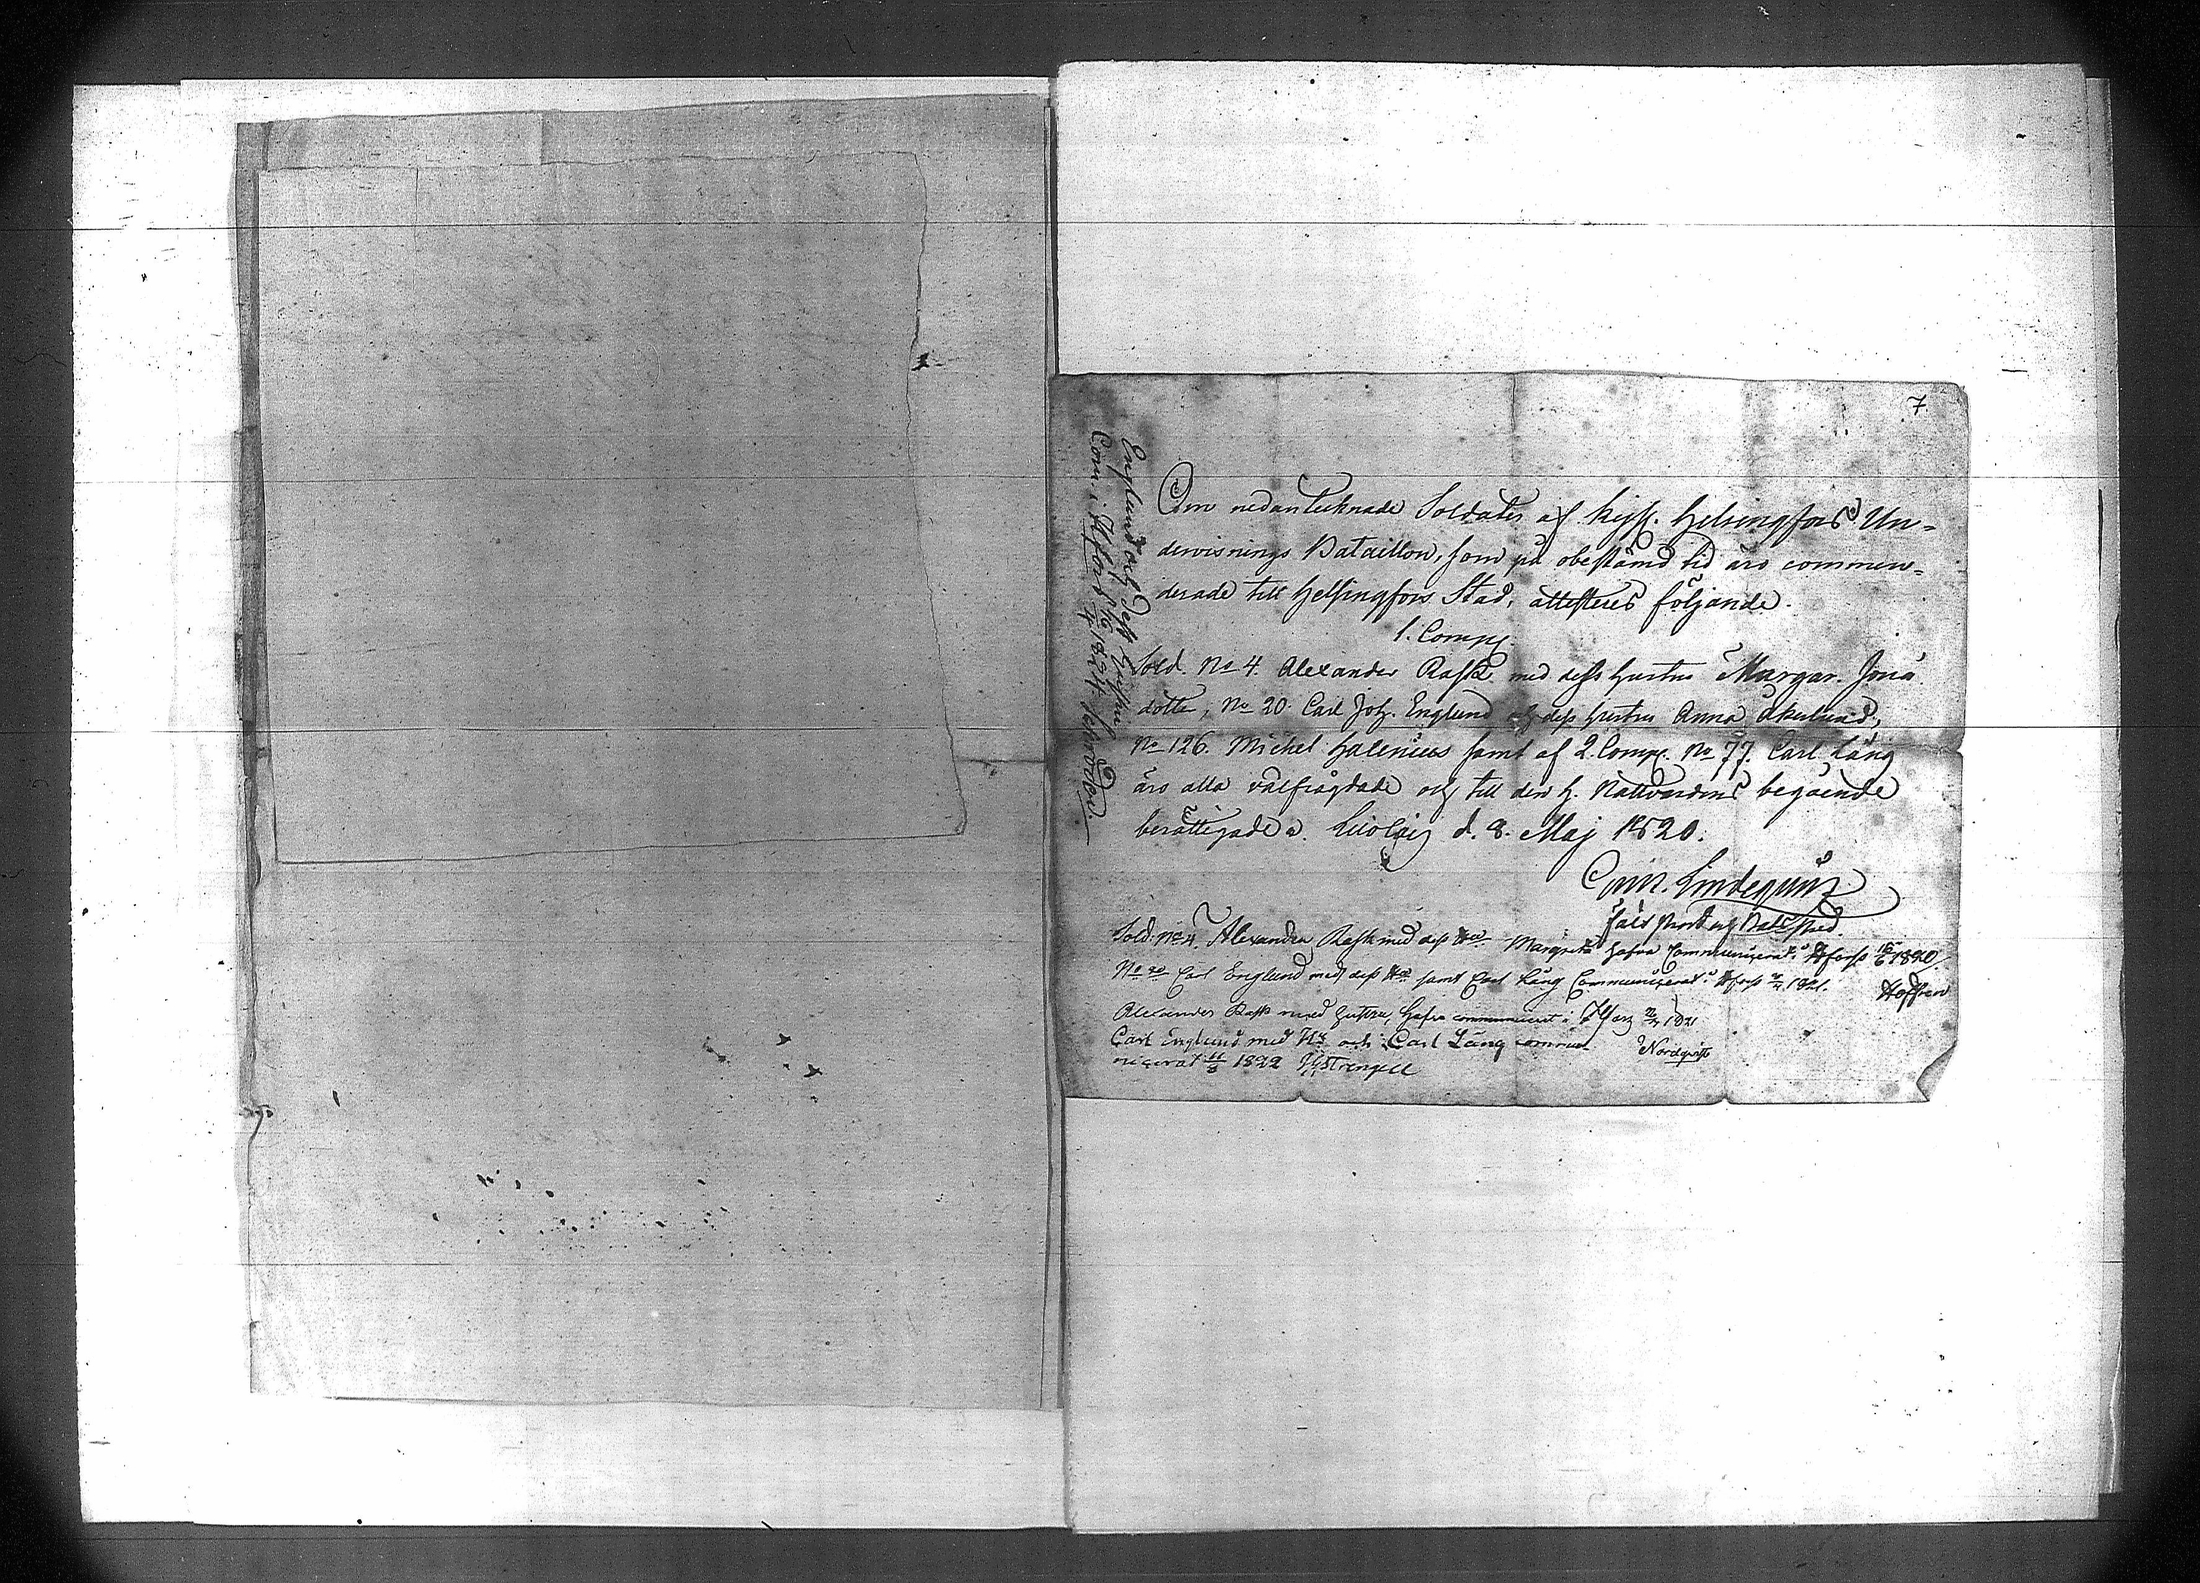 7
Om nedantecknade Soldater af Kejs. Helsingfors Un=
dervisnings Bataillon, som på obestämd tid äro commen=
derade till Helsingfors Stad, attesteres följande.
1. Comp.
Sold. No 4. Alexander Rask med dess hustru Margar. Jona
dotter, No 20. Carl Joh. Englund och dess hustru Anna Åkerlund,
No 126. Michel Galenius samt af 2. Comp. No 77. Carl Lång
äro alla välfrägdade och till den H. Nattvardens begående
berättigade. d. 8. Maj 1820.
Lindeqvist
Fält Prost och Bat. Pred.
Sold: No 4. Alexander Rask med dess Hu Margreta hafva Communicerat i Hfors 1820.
No 20 Carl Englund med dess Hu samt Carl Lång Communicerat i Hfors 1821. Hoffren
Alexander Rask med hustru hafva communicerat i Hfors 1821
Nordqvist
Carl Englund med Hu och Carl Lång commu-
nicerat 1822 Strengell
Englund och dess hustru
Com. i Hfors 1824